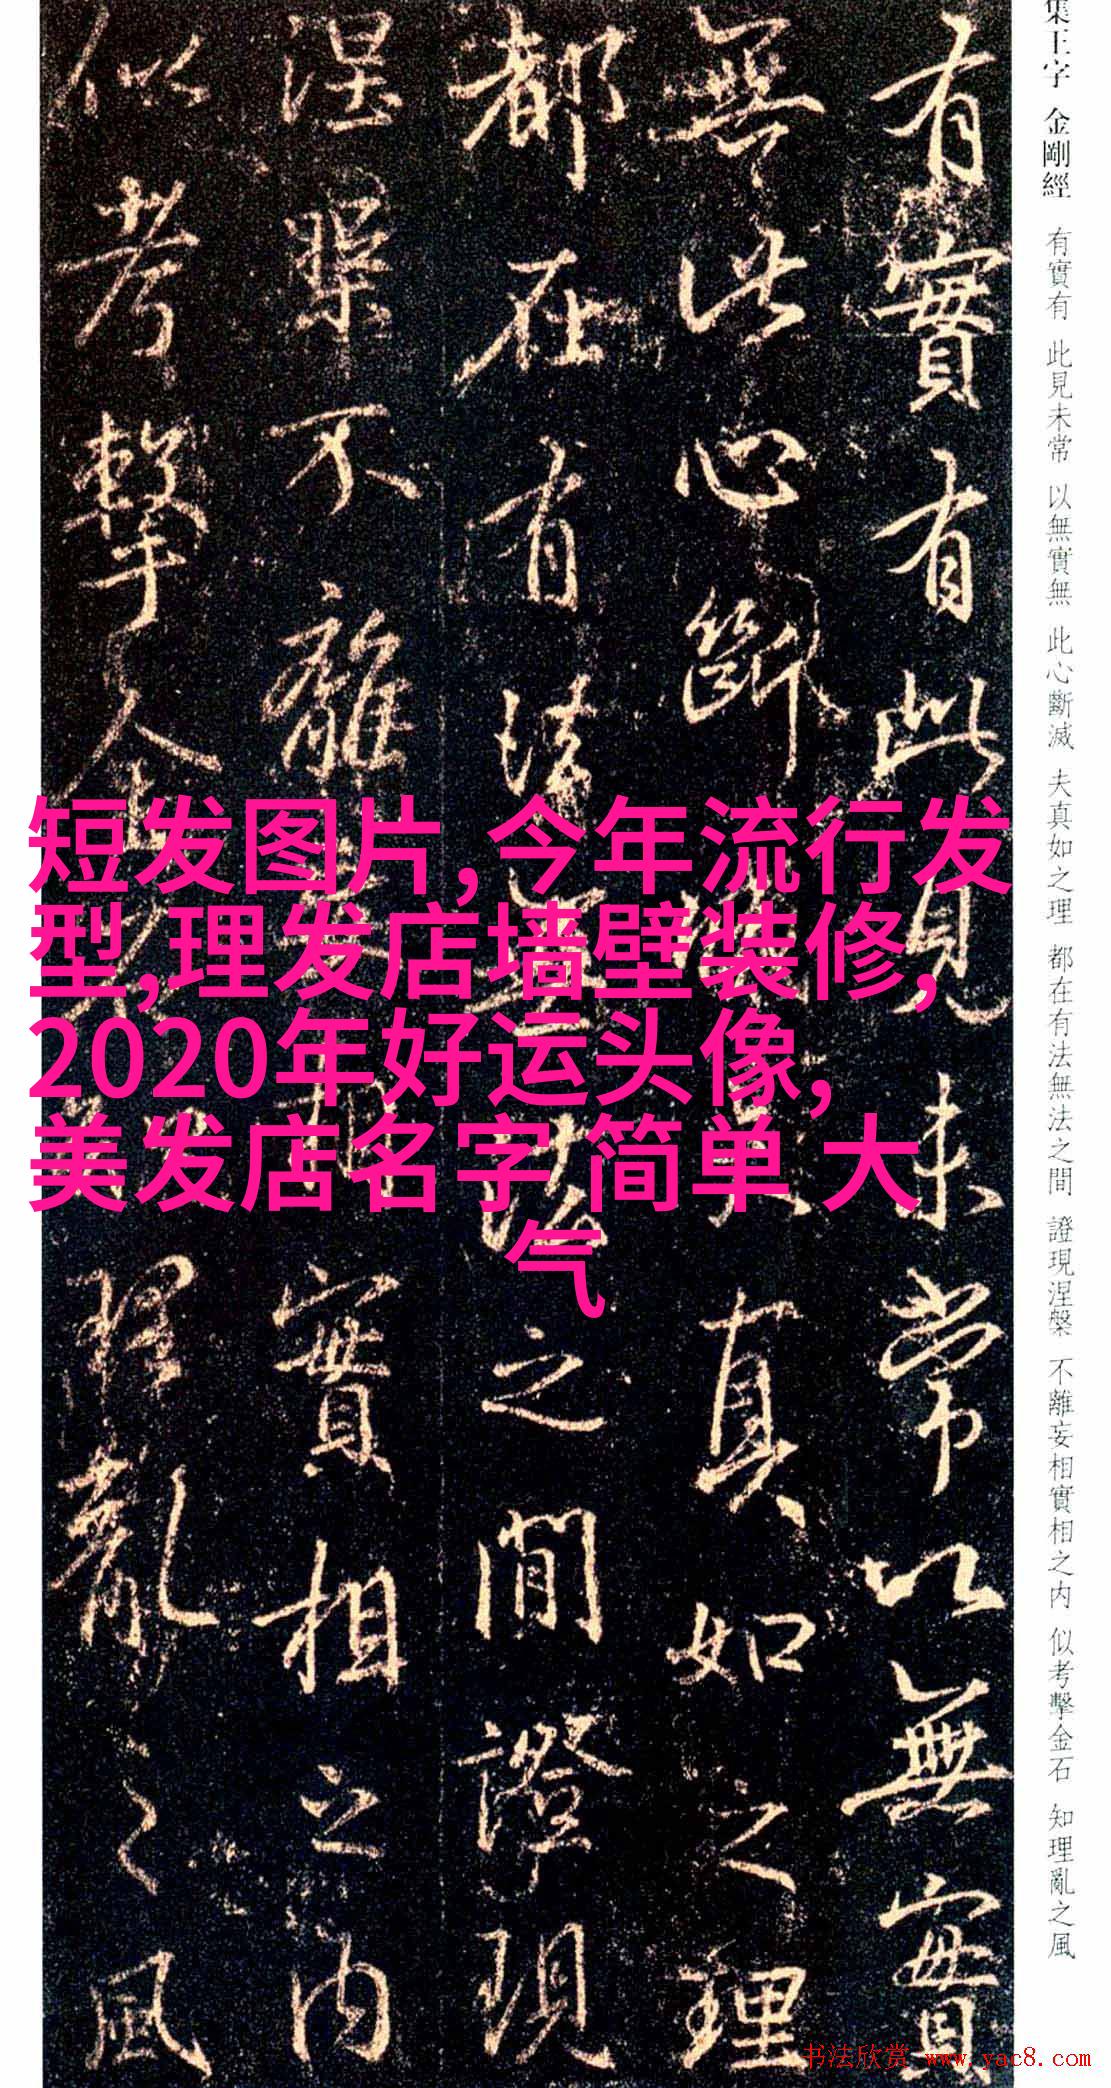 集王字 金剛經 有實有 此見未常 以無實無 此心斷滅 夫真如之理 都在有法無法之間 證現涅槃 不離妄相實相之内 似考擊金石 知理亂之風
有實有此見未常以無實
無此心斷滅夫真如之理
都在有法無法之間證現
涅槃不離妄相實相之内
似考擊金石知理亂之風
短发图片,今年流行发
型,理发店墙壁装修,
2020年好运头像,
美发店名字 简单 大
气
书法欣赏 www.yac8.com